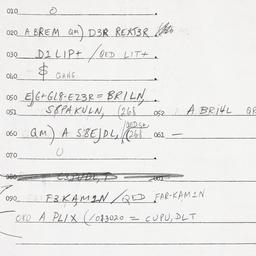 010 0
020 A BREM QM) D3R REXT3R
030 D1 LIP+ / QED LIT+
040 $ GANG
050 EJG+GL8-EZ3R = BRILN,
051 S8PAKULN, (26) 052 A BRI4L QR
060 QM) A S8EJDL, (26) 061 —
070 0
080 081
090 F3KAM1N / QED FAR-KAM1N
080 A PLIX (/083020 = CUPU,DLT